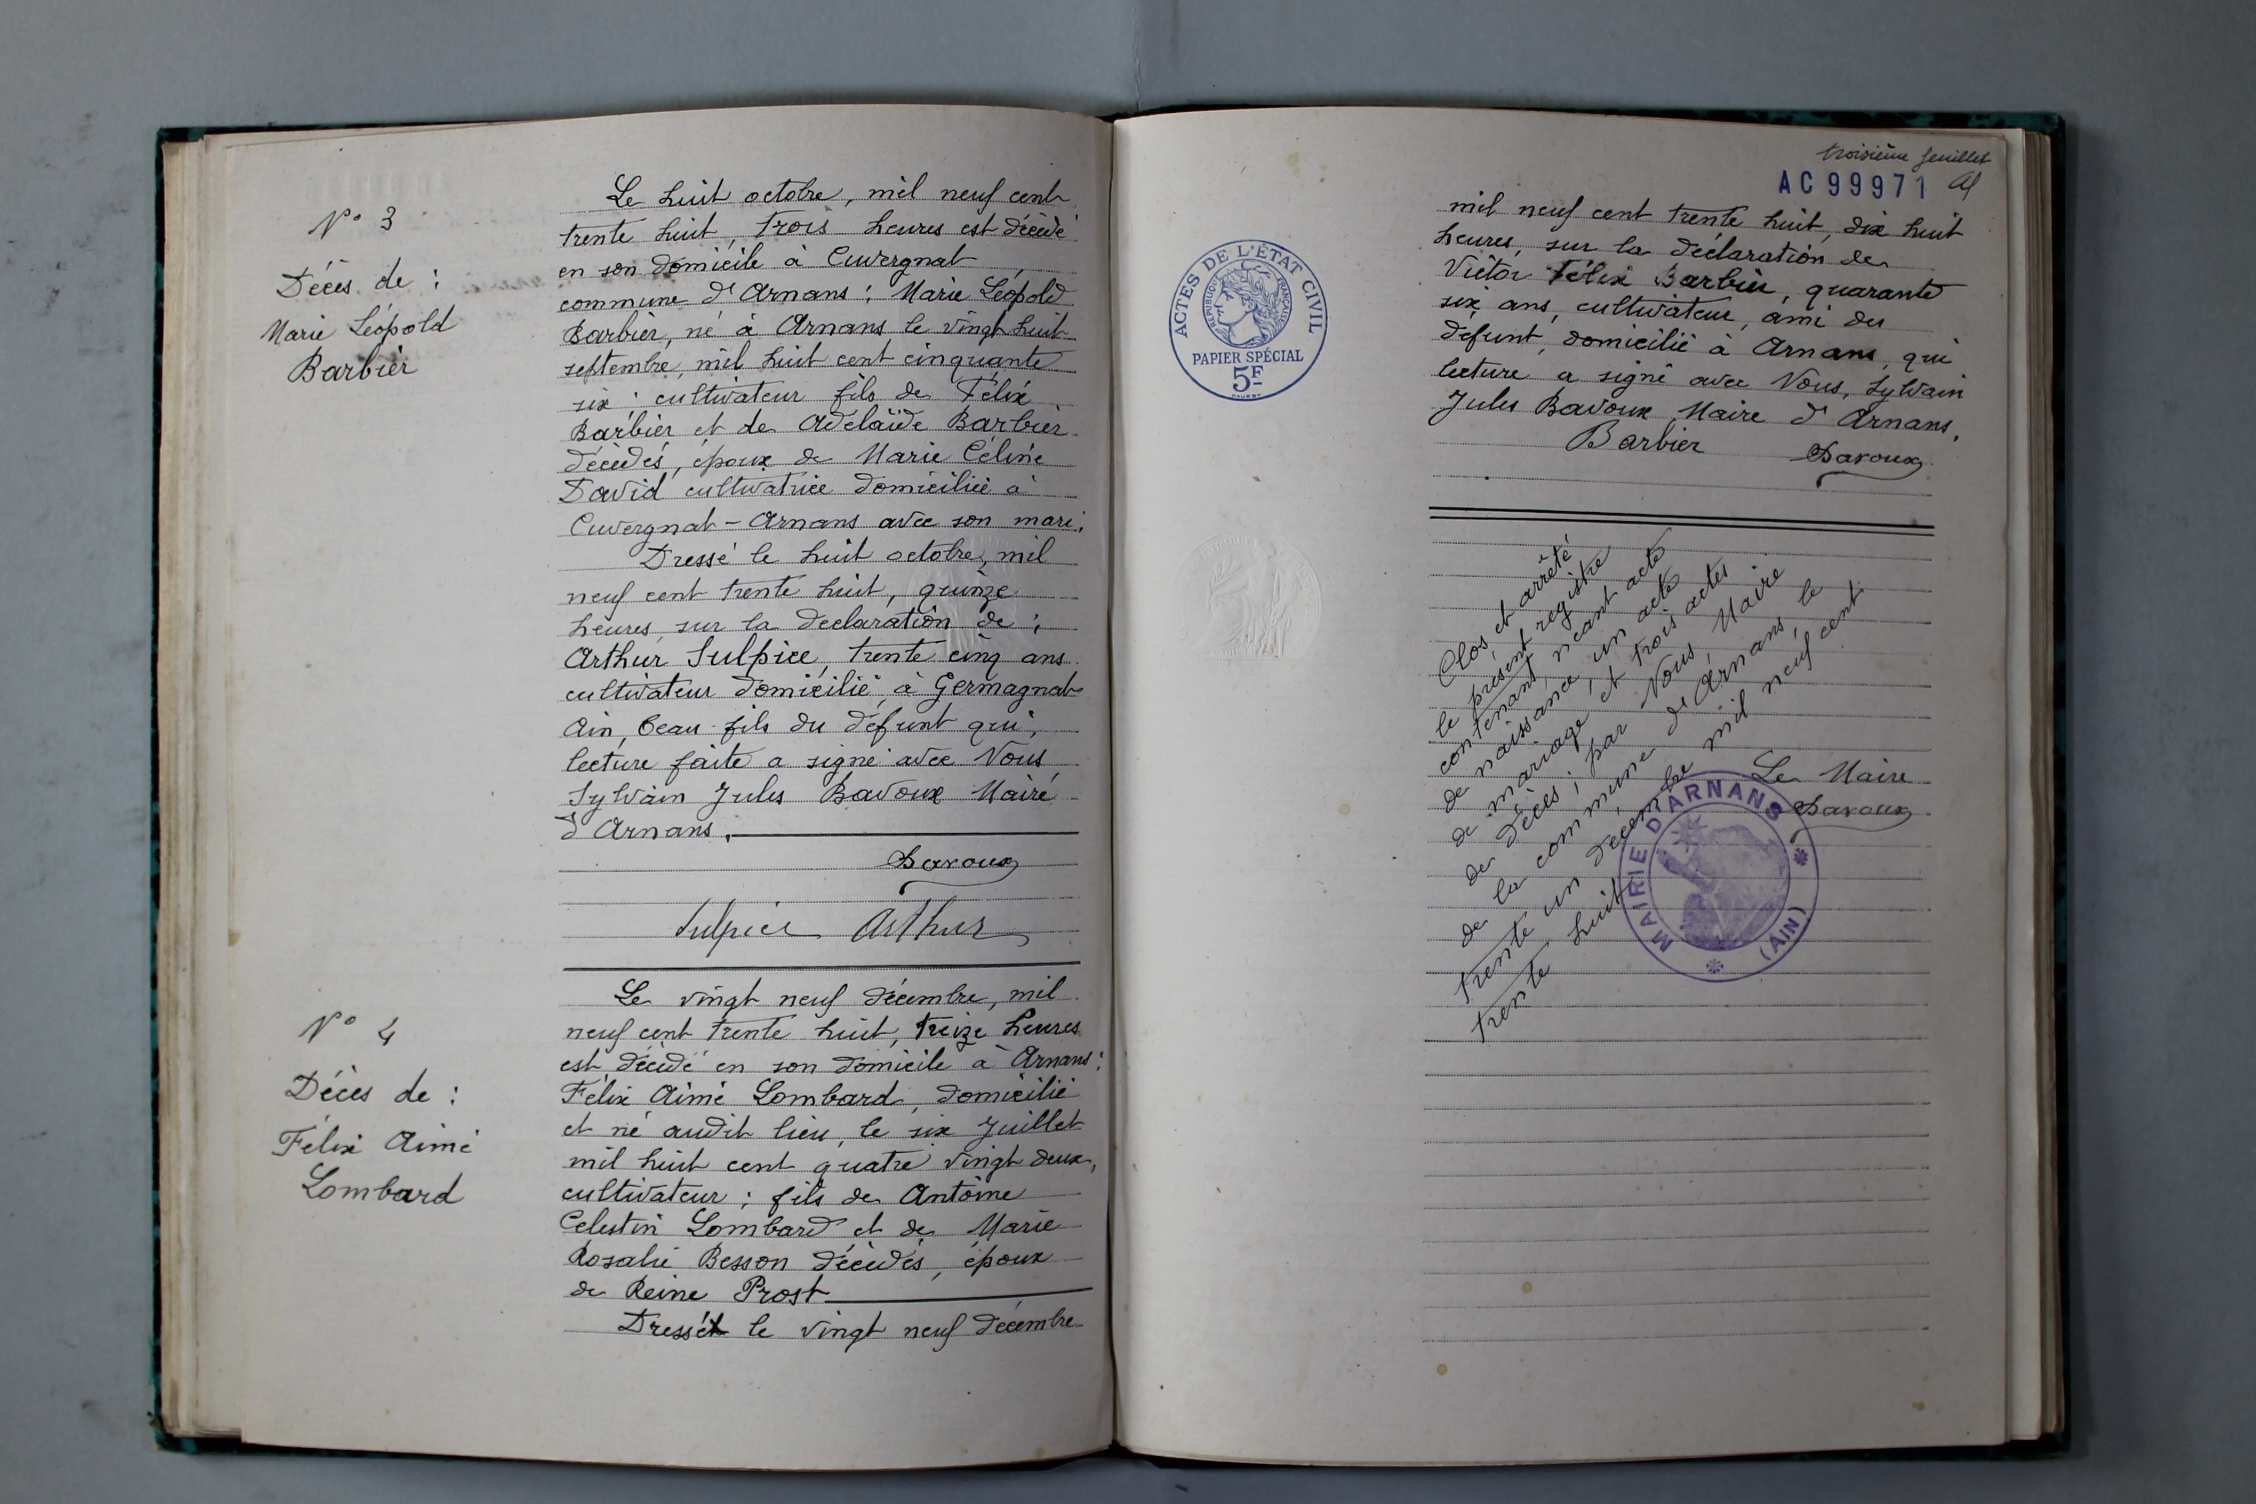 N° 3
Décès de :
Marie Léopold
Barbier
Le huit octobre, mil neuf cent
trente huit, trois heures est décédé
en son domicile à Cuvergnat
commune d'Arnans : Marie Léopold
Barbier, né à Arnans le vingt huit
septembre, mil huit cent cinquante
six ; cultivateur fils de Félix
Barbier et de Adelaïde Barbier
décédés, époux de Marie Céline
David cultivatrice domiciliée à
Cuvergnat - Arnans avec son mari.
Dressé le huit octobre, mil
neuf cent trente huit, quinze
heures, sur la declaration de :
Arthur Sulpice, trente cinq ans
cultivateur domicilié, à Germagnat
Ain, beau-fils du défunt qui,
lecture faite a signé avec Nous
Sylvain Jules Bavoux Maire
d'Arnans.
Bavoux
Sulpice Arthur
N° 4
Décès de :
Félix Aimé
Lombard
Le vingt neuf décembre, mil
neuf cent trente huit, treize heures
est décédé en son domicile à Arnans :
Félix Aimé Lombard, domicilié
et né audit lieu, le six Juillet
mil huit cent quatre vingt deux,
cultivateur ; fils de Antoine
Celestin Lombard et de Marie
Rosalie Besson décédés, époux
de Reine Prost
Dressé le vingt neuf décembre
troisième feuillet
AC 99971
ACTES DE L'ÉTAT CIVIL
RÉPUBLIQUE FRANÇAISE
PAPIER SPÉCIAL
5F
mil neuf cent trente huit, dix huit
heures, sur la déclaration de
Victor Félix Barbier, quarante
six ans, cultivateur, ami du
défunt, domicilié à Arnans, qui
lecture a signé avec Nous, Sylvain
Jules Bavoux Maire d'Arnans.
Barbier Bavoux
Clos et arrêté
le présent registre
contenant, néant acte
de naissance, un acte
de mariage et trois actes
de décès ; par Nous, Maire
de la commune d'Arnans, le
trente un décembre mil neuf cent
trente huit
Le Maire
Bavoux
MAIRIE D'ARNANS
(AIN)